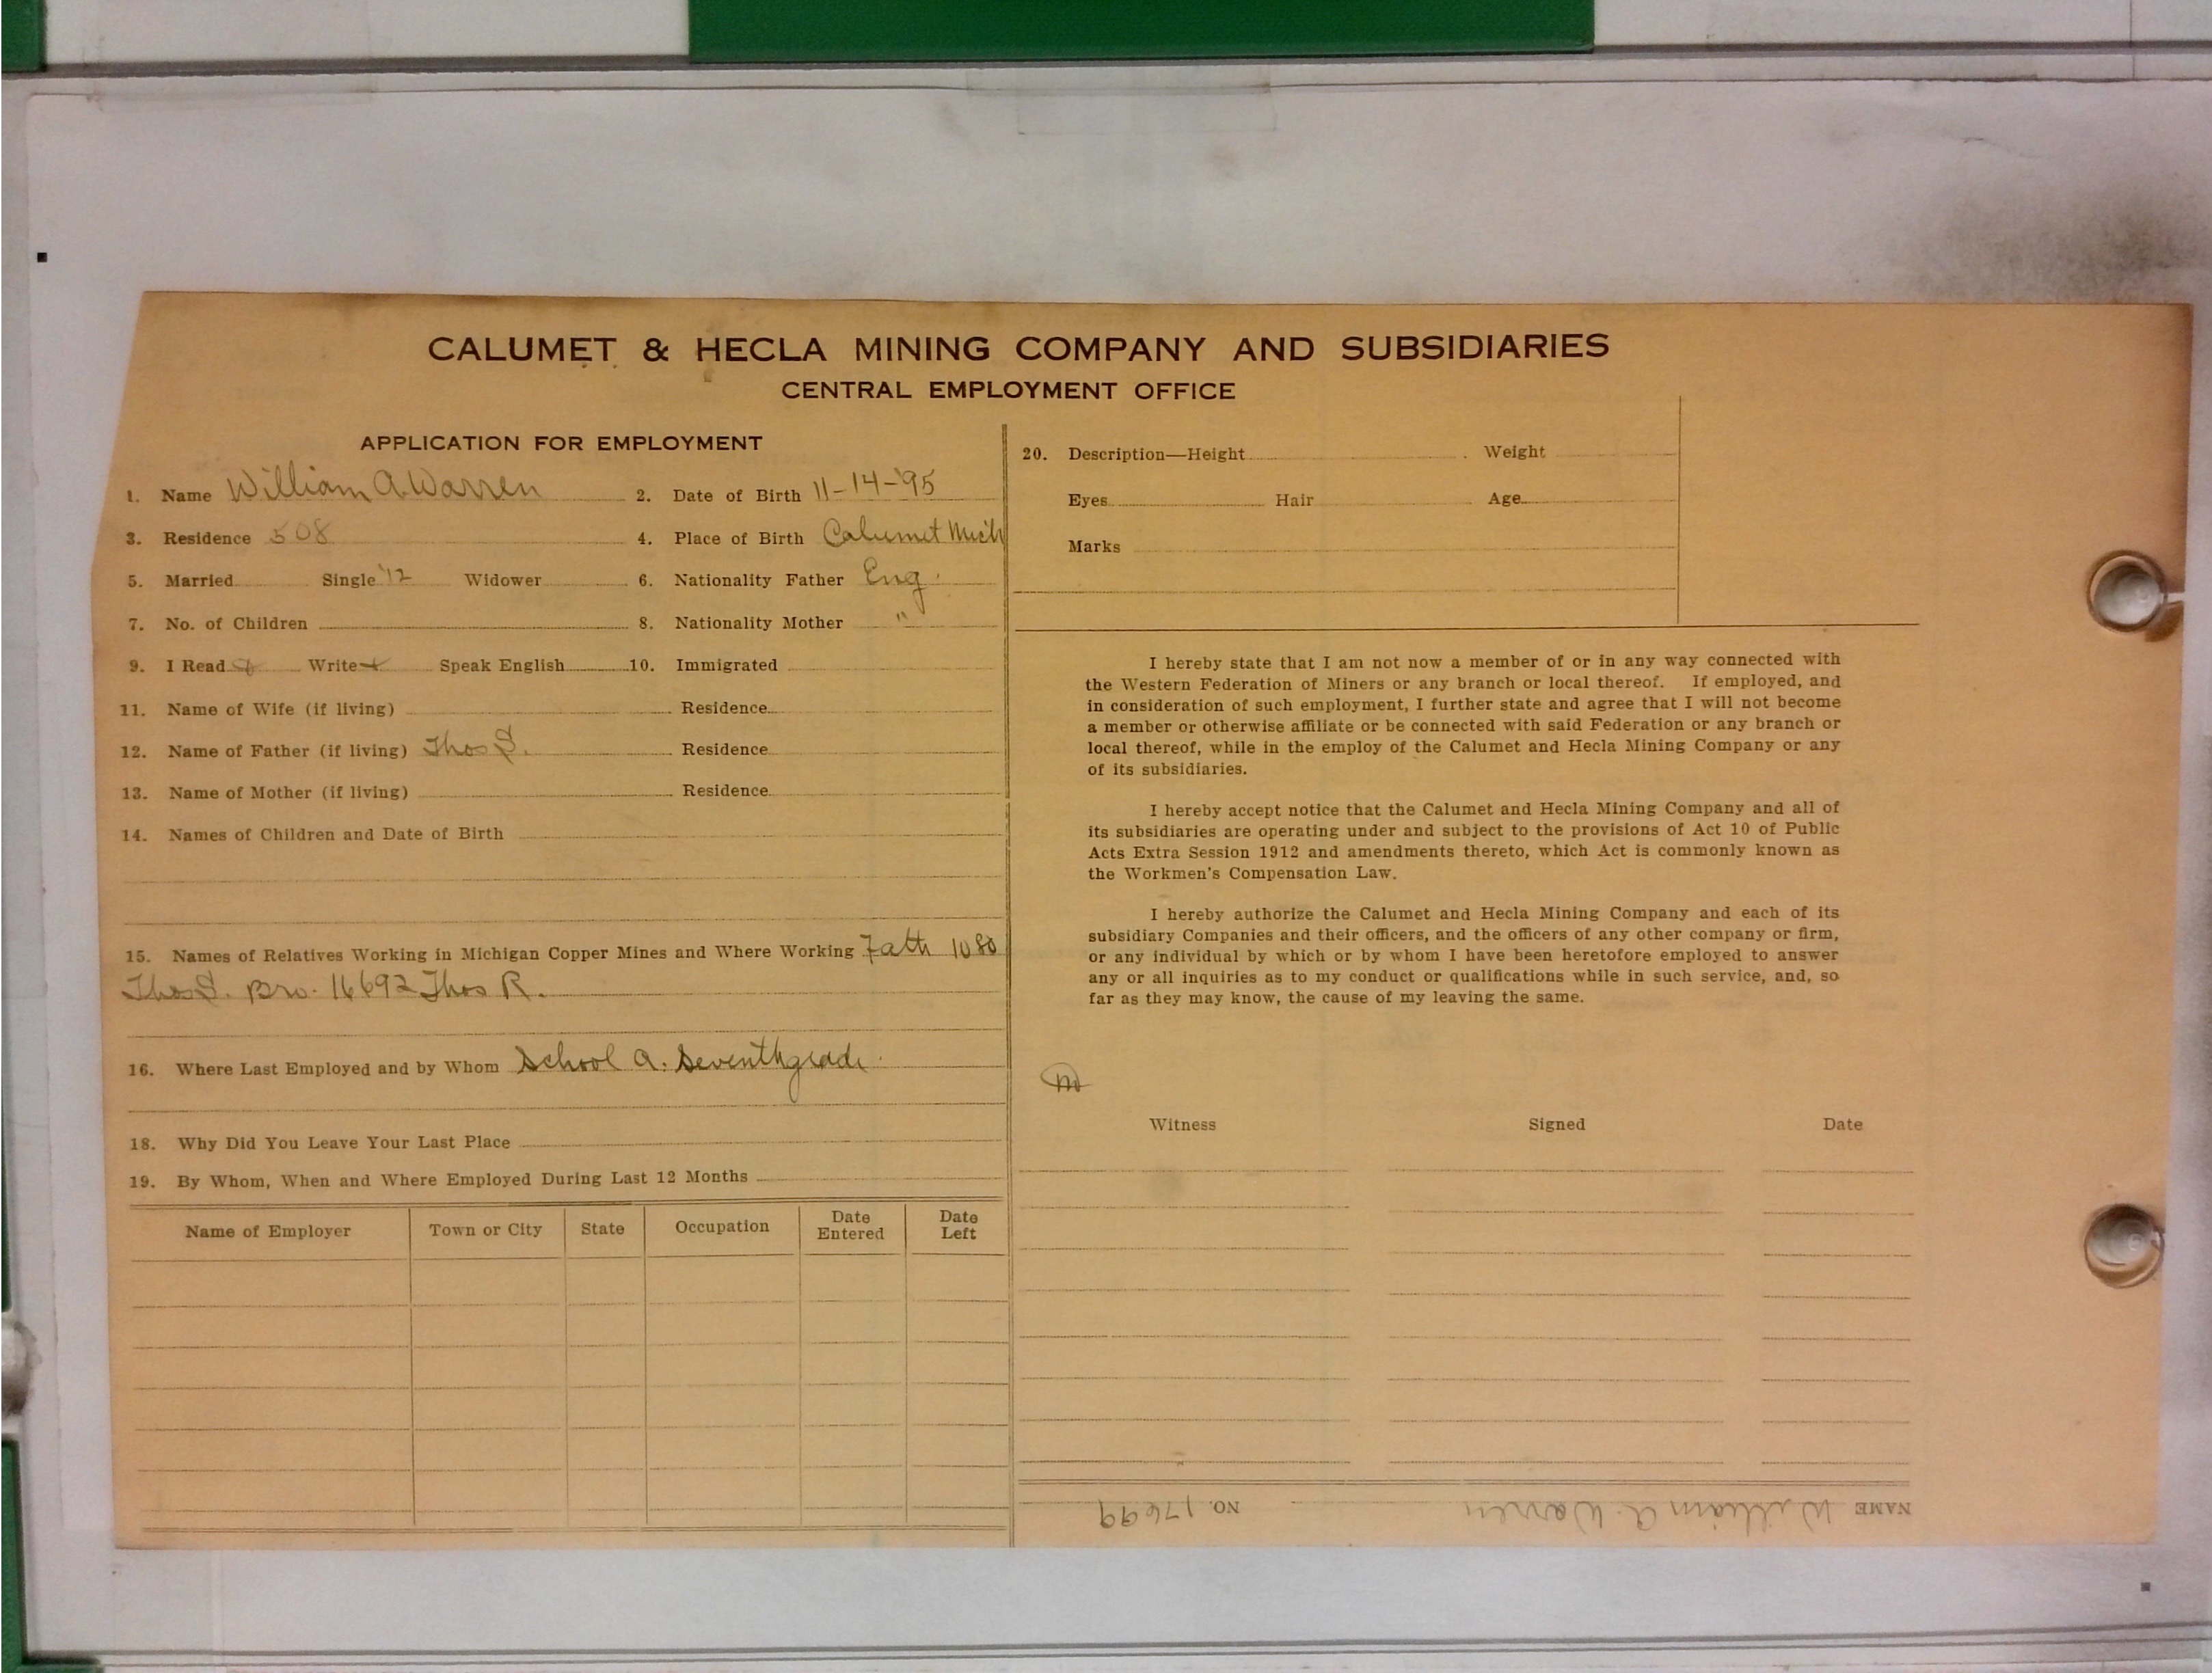 CALUMET & HECLA MINING COMPANY AND SUBSIDIARIES
CENTRAL EMPLOYMENT OFFICE
APPLICATION FOR EMPLOYMENT
1. Name William A. Warren 2. Date of Birth 11-14-'95
3. Residence 508 4. Place of Birth Calumet Mich
5. Married Single '12 Widower 6. Nationality Father Eng.
7. No. of Children 8. Nationality Mother "
9. I Read Write Speak English 10. Immigrated
11. Name of Wife (if living) Residence
12. Name of Father (if living) Thos S. Residence
13. Name of Mother (if living) Residence
14. Names of Children and Date of Birth
15. Names of Relatives Working in Michigan Copper Mines and Where Working Fath 1080
Thos S. Bro. 16692 Thos R.
16. Where Last Employed and by Whom School A. Seventh grade.
18. Why Did You Leave Your Last Place
19. By Whom, When and Where Employed During Last 12 Months
Name of Employer Town or City State Occupation Date Entered Date Left
20. Description—Height Weight
Eyes Hair Age
Marks
I hereby state that I am not now a member of or in any way connected with
the Western Federation of Miners or any branch or local thereof. If employed, and
in consideration of such employment, I further state and agree that I will not become
a member or otherwise affiliate or be connected with said Federation or any branch or
local thereof, while in the employ of the Calumet and Hecla Mining Company or any
of its subsidiaries.
I hereby accept notice that the Calumet and Hecla Mining Company and all of
its subsidiaries are operating under and subject to the provisions of Act 10 of Public
Acts Extra Session 1912 and amendments thereto, which Act is commonly known as
the Workmen's Compensation Law.
I hereby authorize the Calumet and Hecla Mining Company and each of its
subsidiary Companies and their officers, and the officers of any other company or firm,
or any individual by which or by whom I have been heretofore employed to answer
any or all inquiries as to my conduct or qualifications while in such service, and, so
far as they may know, the cause of my leaving the same.
Witness Signed Date
NAME William A. Warren NO. 17699